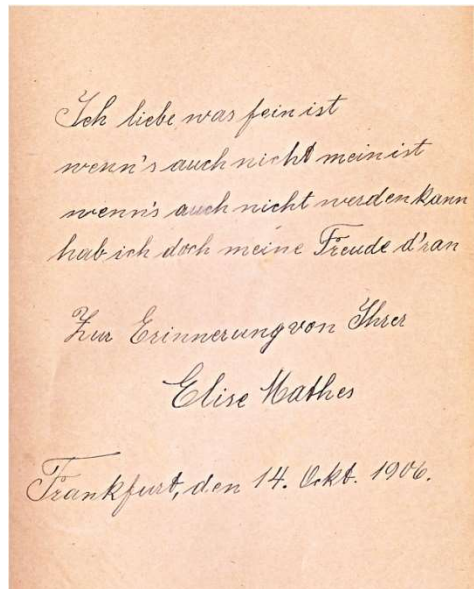 Ich liebe was fein ist
wenn's auch nicht mein ist
wenn's auch nicht werden kann
hab ich doch meine Freude d'ran
Zur Erinnerung von Ihrer
Elise Mathes
Frankfurt, den 14. Ockt. 1906.